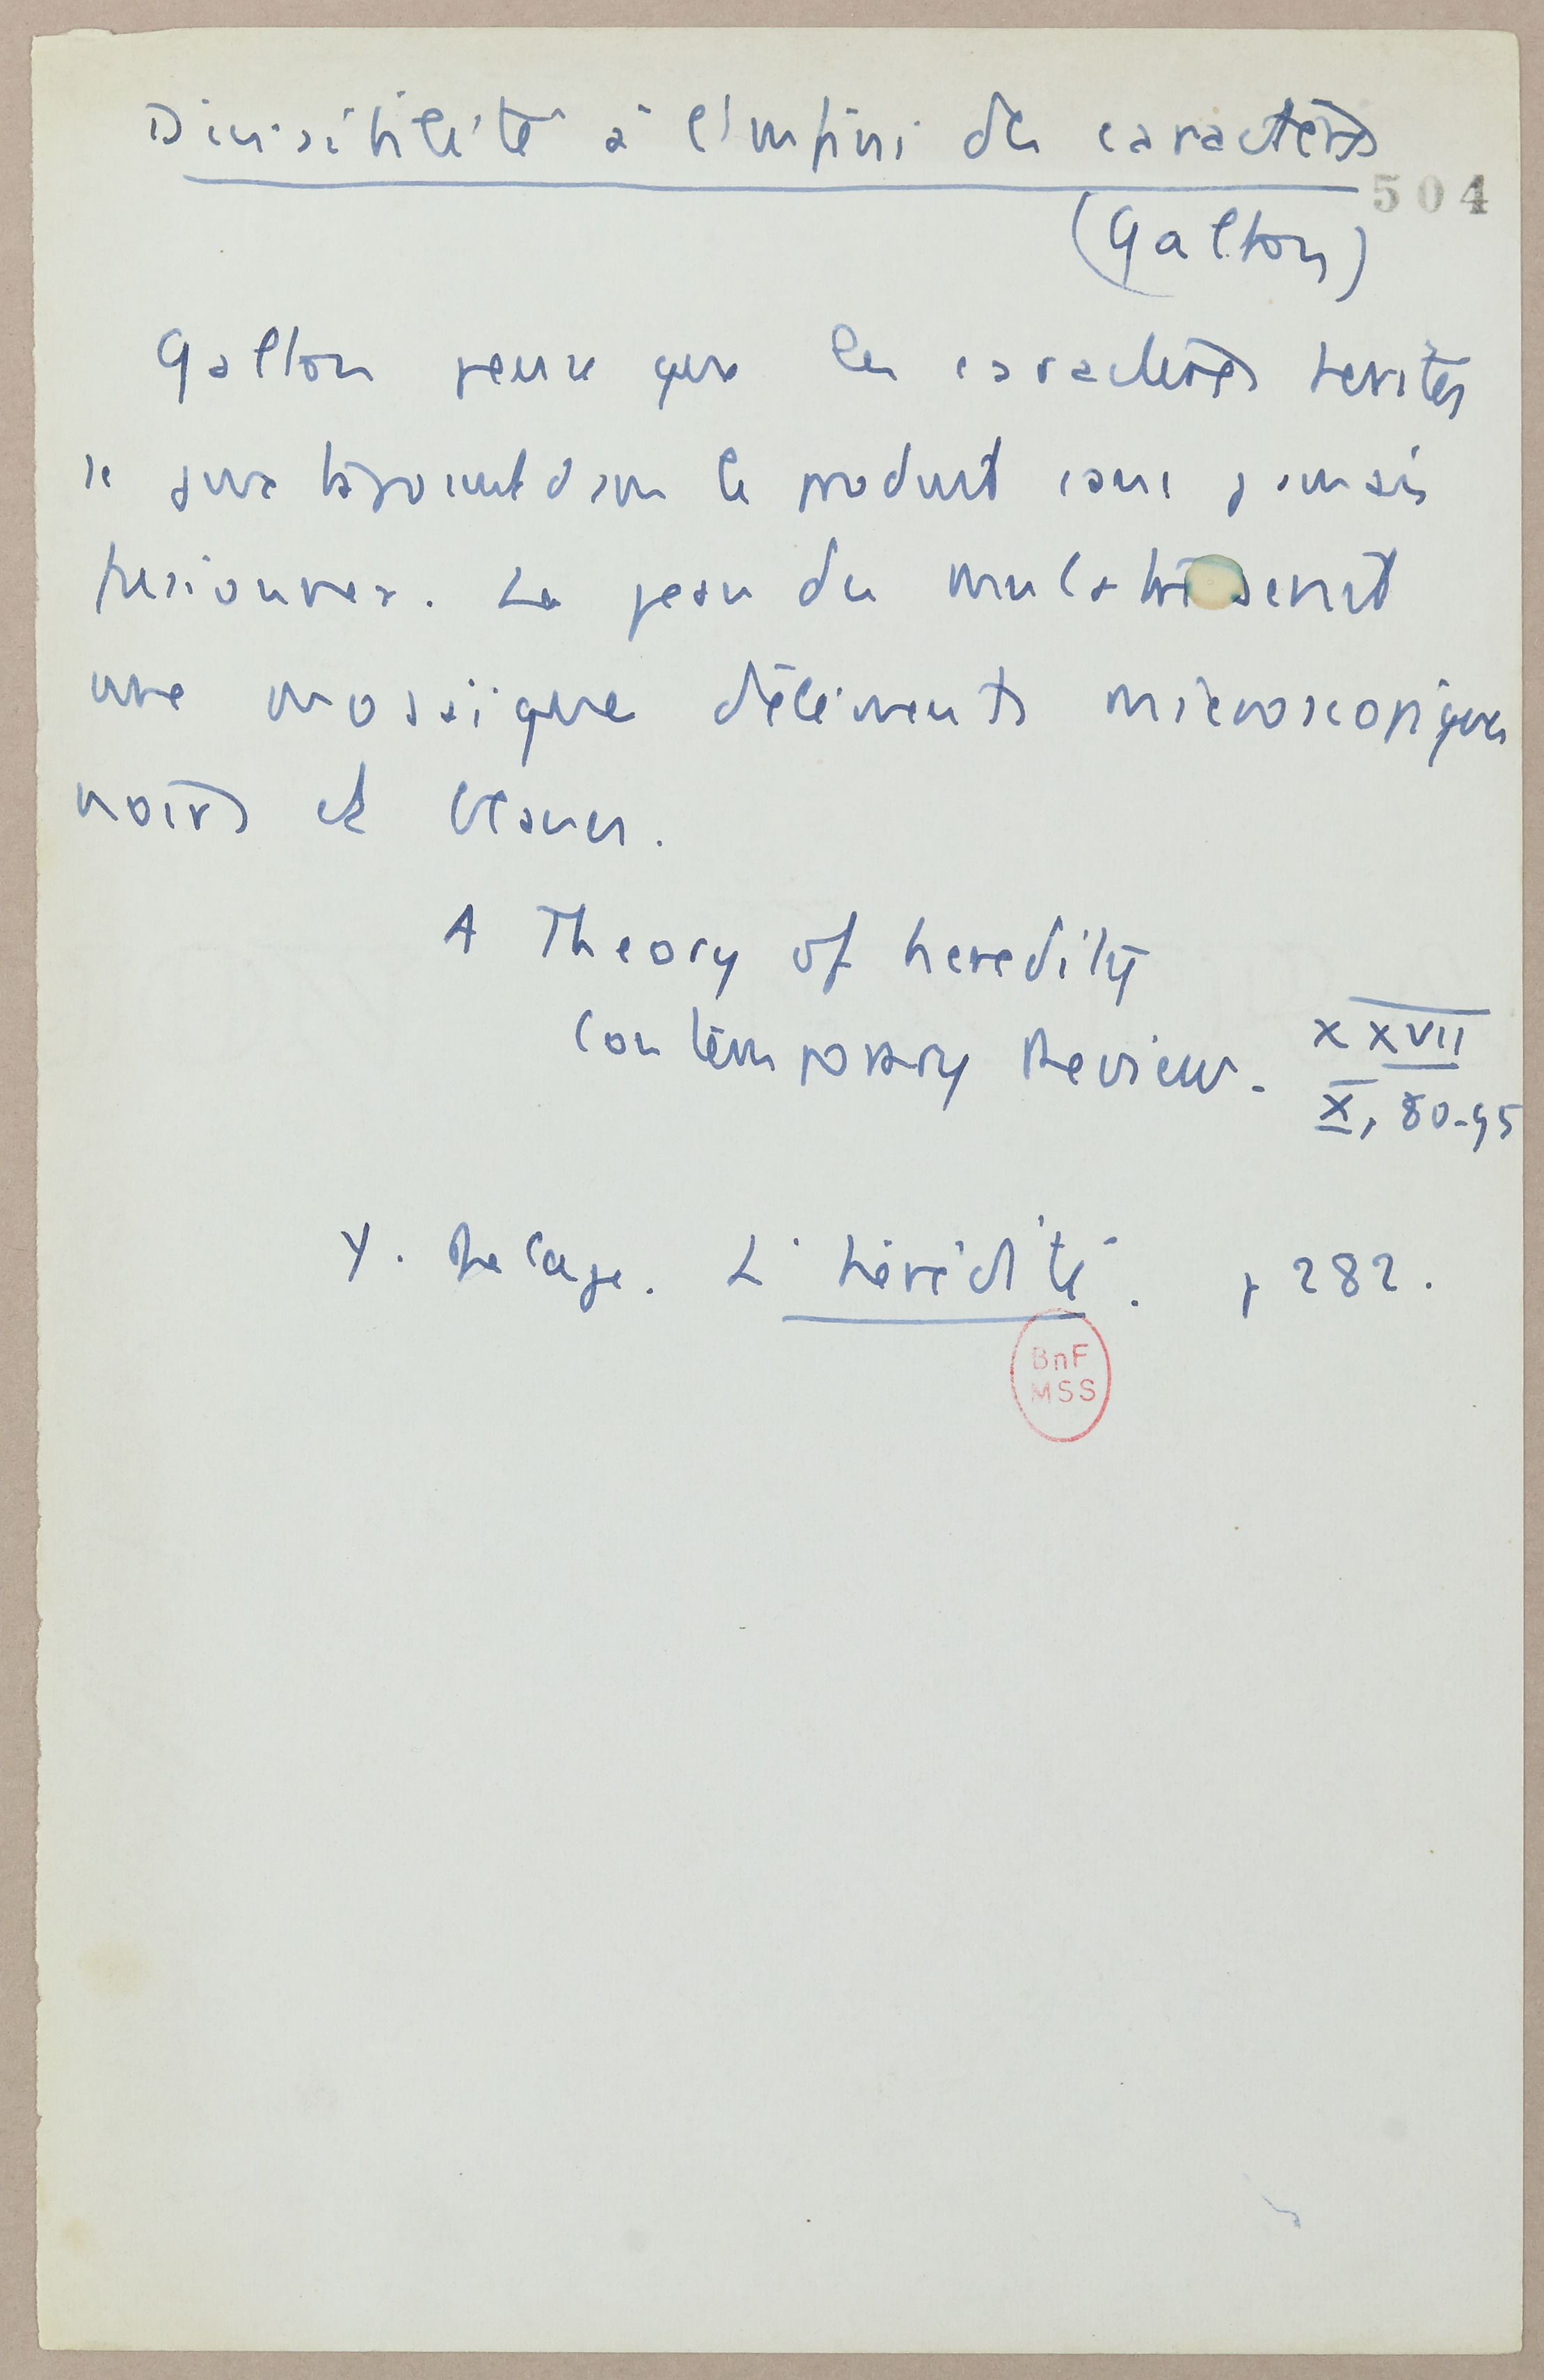 Divisibilité à l'infini des caractères
504
(Galton)
Galton pense que les caractères hérités
se juxtaposent dans le produit sans jamais
fusionner. La peau du mulâtre serait
une mosaïque d'éléments microscopiques
noirs et blancs.
A Theory of heredity
Contemporary Review. XXVII
X, 80-95
Y. Delage. L'hérédité. p 282.
BnF
MSS